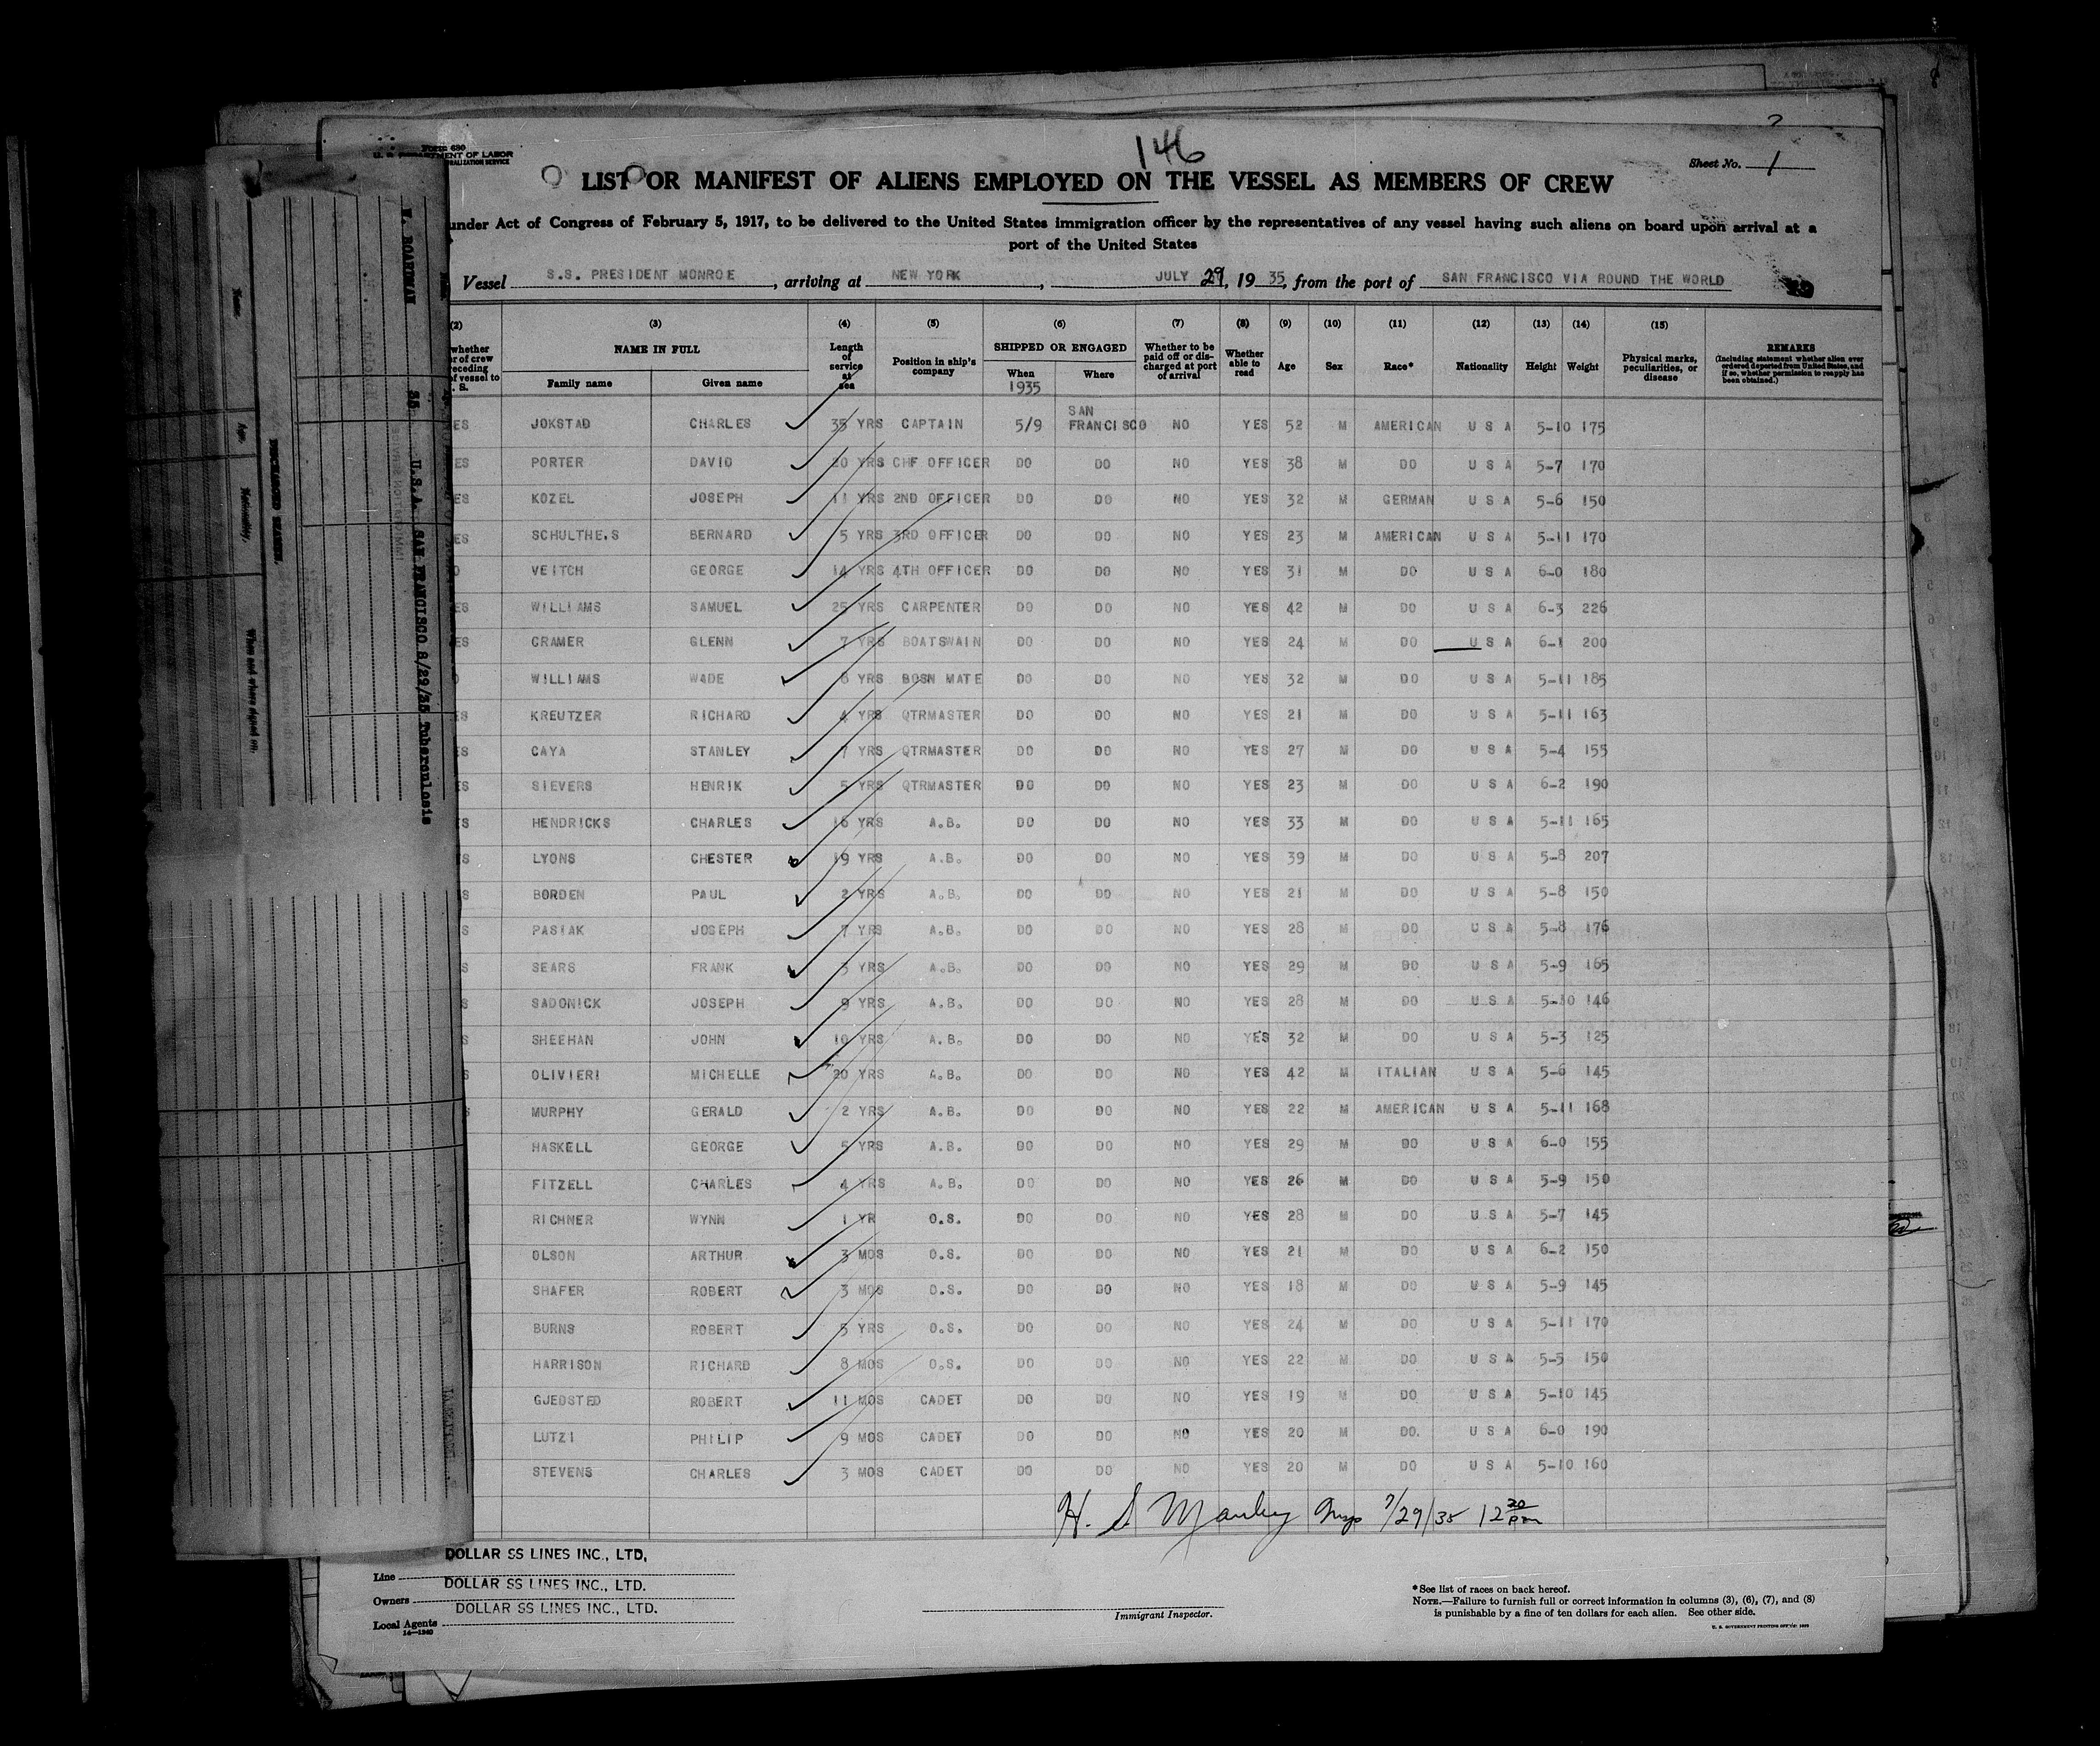 Form 680
U. S. DEPARTMENT OF LABOR
146
Sheet No. 1
LIST OR MANIFEST OF ALIENS EMPLOYED ON THE VESSEL AS MEMBERS OF CREW
under Act of Congress of February 5, 1917, to be delivered to the United States immigration officer by the representatives of any vessel having such aliens on board upon arrival at a
port of the United States
Vessel S.S. PRESIDENT MONROE, arriving at NEW YORK, JULY 29, 1935, from the port of SAN FRANCISCO VIA ROUND THE WORLD
(2) (3) (4) (5) (6) (7) (8) (9) (10) (11) (12) (13) (14) (15)
NAME IN FULL
Family name Given name
Length of service at sea
Position in ship's company
SHIPPED OR ENGAGED
When Where
1935
Whether to be paid off or discharged at port of arrival
Whether able to read
Age Sex Race* Nationality Height Weight
Physical marks, peculiarities, or disease
REMARKS
(Including statement whether alien ever ordered deported from United States, and if so, whether permission to reapply has been obtained.)
ES JOKSTAD CHARLES 35 YRS CAPTAIN 5/9 SAN FRANCISCO NO YES 52 M AMERICAN U S A 5-10 175
ES PORTER DAVID 20 YRS CHF OFFICER DO DO NO YES 38 M DO U S A 5-7 170
ES KOZEL JOSEPH 11 YRS 2ND OFFICER DO DO NO YES 32 M GERMAN U S A 5-6 150
ES SCHULTHE.S BERNARD 5 YRS 3RD OFFICER DO DO NO YES 23 M AMERICAN U S A 5-11 170
O VEITCH GEORGE 14 YRS 4TH OFFICER DO DO NO YES 31 M DO U S A 6-0 180
ES WILLIAMS SAMUEL 25 YRS CARPENTER DO DO NO YES 42 M DO U S A 6-3 226
ES CRAMER GLENN 7 YRS BOATSWAIN DO DO NO YES 24 M DO U S A 6-1 200
O WILLIAMS WADE 6 YRS BOSN MATE DO DO NO YES 32 M DO U S A 5-11 185
ES KREUTZER RICHARD 4 YRS QTRMASTER DO DO NO YES 21 M DO U S A 5-11 163
S CAYA STANLEY 7 YRS QTRMASTER DO DO NO YES 27 M DO U S A 5-4 155
S SIEVERS HENRIK 5 YRS QTRMASTER DO DO NO YES 23 M DO U S A 6-2 190
S HENDRICKS CHARLES 16 YRS A.B. DO DO NO YES 33 M DO U S A 5-11 165
S LYONS CHESTER 19 YRS A.B. DO DO NO YES 39 M DO U S A 5-8 207
S BORDEN PAUL 2 YRS A.B. DO DO NO YES 21 M DO U S A 5-8 150
S PASIAK JOSEPH 7 YRS A.B. DO DO NO YES 28 M DO U S A 5-8 176
S SEARS FRANK 3 YRS A.B. DO DO NO YES 29 M DO U S A 5-9 165
S SADONICK JOSEPH 9 YRS A.B. DO DO NO YES 28 M DO U S A 5-10 146
S SHEEHAN JOHN 10 YRS A.B. DO DO NO YES 32 M DO U S A 5-3 125
S OLIVIERI MICHELLE 20 YRS A.B. DO DO NO YES 42 M ITALIAN U S A 5-6 145
S MURPHY GERALD 2 YRS A.B. DO DO NO YES 22 M AMERICAN U S A 5-11 168
HASKELL GEORGE 5 YRS A.B. DO DO NO YES 29 M DO U S A 6-0 155
FITZELL CHARLES 4 YRS A.B. DO DO NO YES 26 M DO U S A 5-9 150
RICHNER WYNN 1 YR O.S. DO DO NO YES 28 M DO U S A 5-7 145
OLSON ARTHUR 3 MOS O.S. DO DO NO YES 21 M DO U S A 6-2 150
SHAFER ROBERT 3 MOS O.S. DO DO NO YES 18 M DO U S A 5-9 145
BURNS ROBERT 5 YRS O.S. DO DO NO YES 24 M DO U S A 5-11 170
HARRISON RICHARD 8 MOS O.S. DO DO NO YES 22 M DO U S A 5-5 150
GJEDSTED ROBERT 11 MOS CADET DO DO NO YES 19 M DO U S A 5-10 145
LUTZI PHILIP 9 MOS CADET DO DO NO YES 20 M DO. U S A 6-0 190
STEVENS CHARLES 3 MOS CADET DO DO NO YES 20 M DO U S A 5-10 160
H. S Manley Insp 7/29/35 12 30 pm
Line DOLLAR SS LINES INC., LTD.
Owners DOLLAR SS LINES INC., LTD.
Local Agents DOLLAR SS LINES INC., LTD.
14-1240
Immigrant Inspector.
*See list of races on back hereof.
NOTE.—Failure to furnish full or correct information in columns (3), (6), (7), and (8)
is punishable by a fine of ten dollars for each alien. See other side.
BOARDMAN 35 U.S.A. SAN FRANCISCO 8/29/35 Tuberculosis
Name. Age. Nationality. When and where signed on.
DISCHARGED SEAMEN.